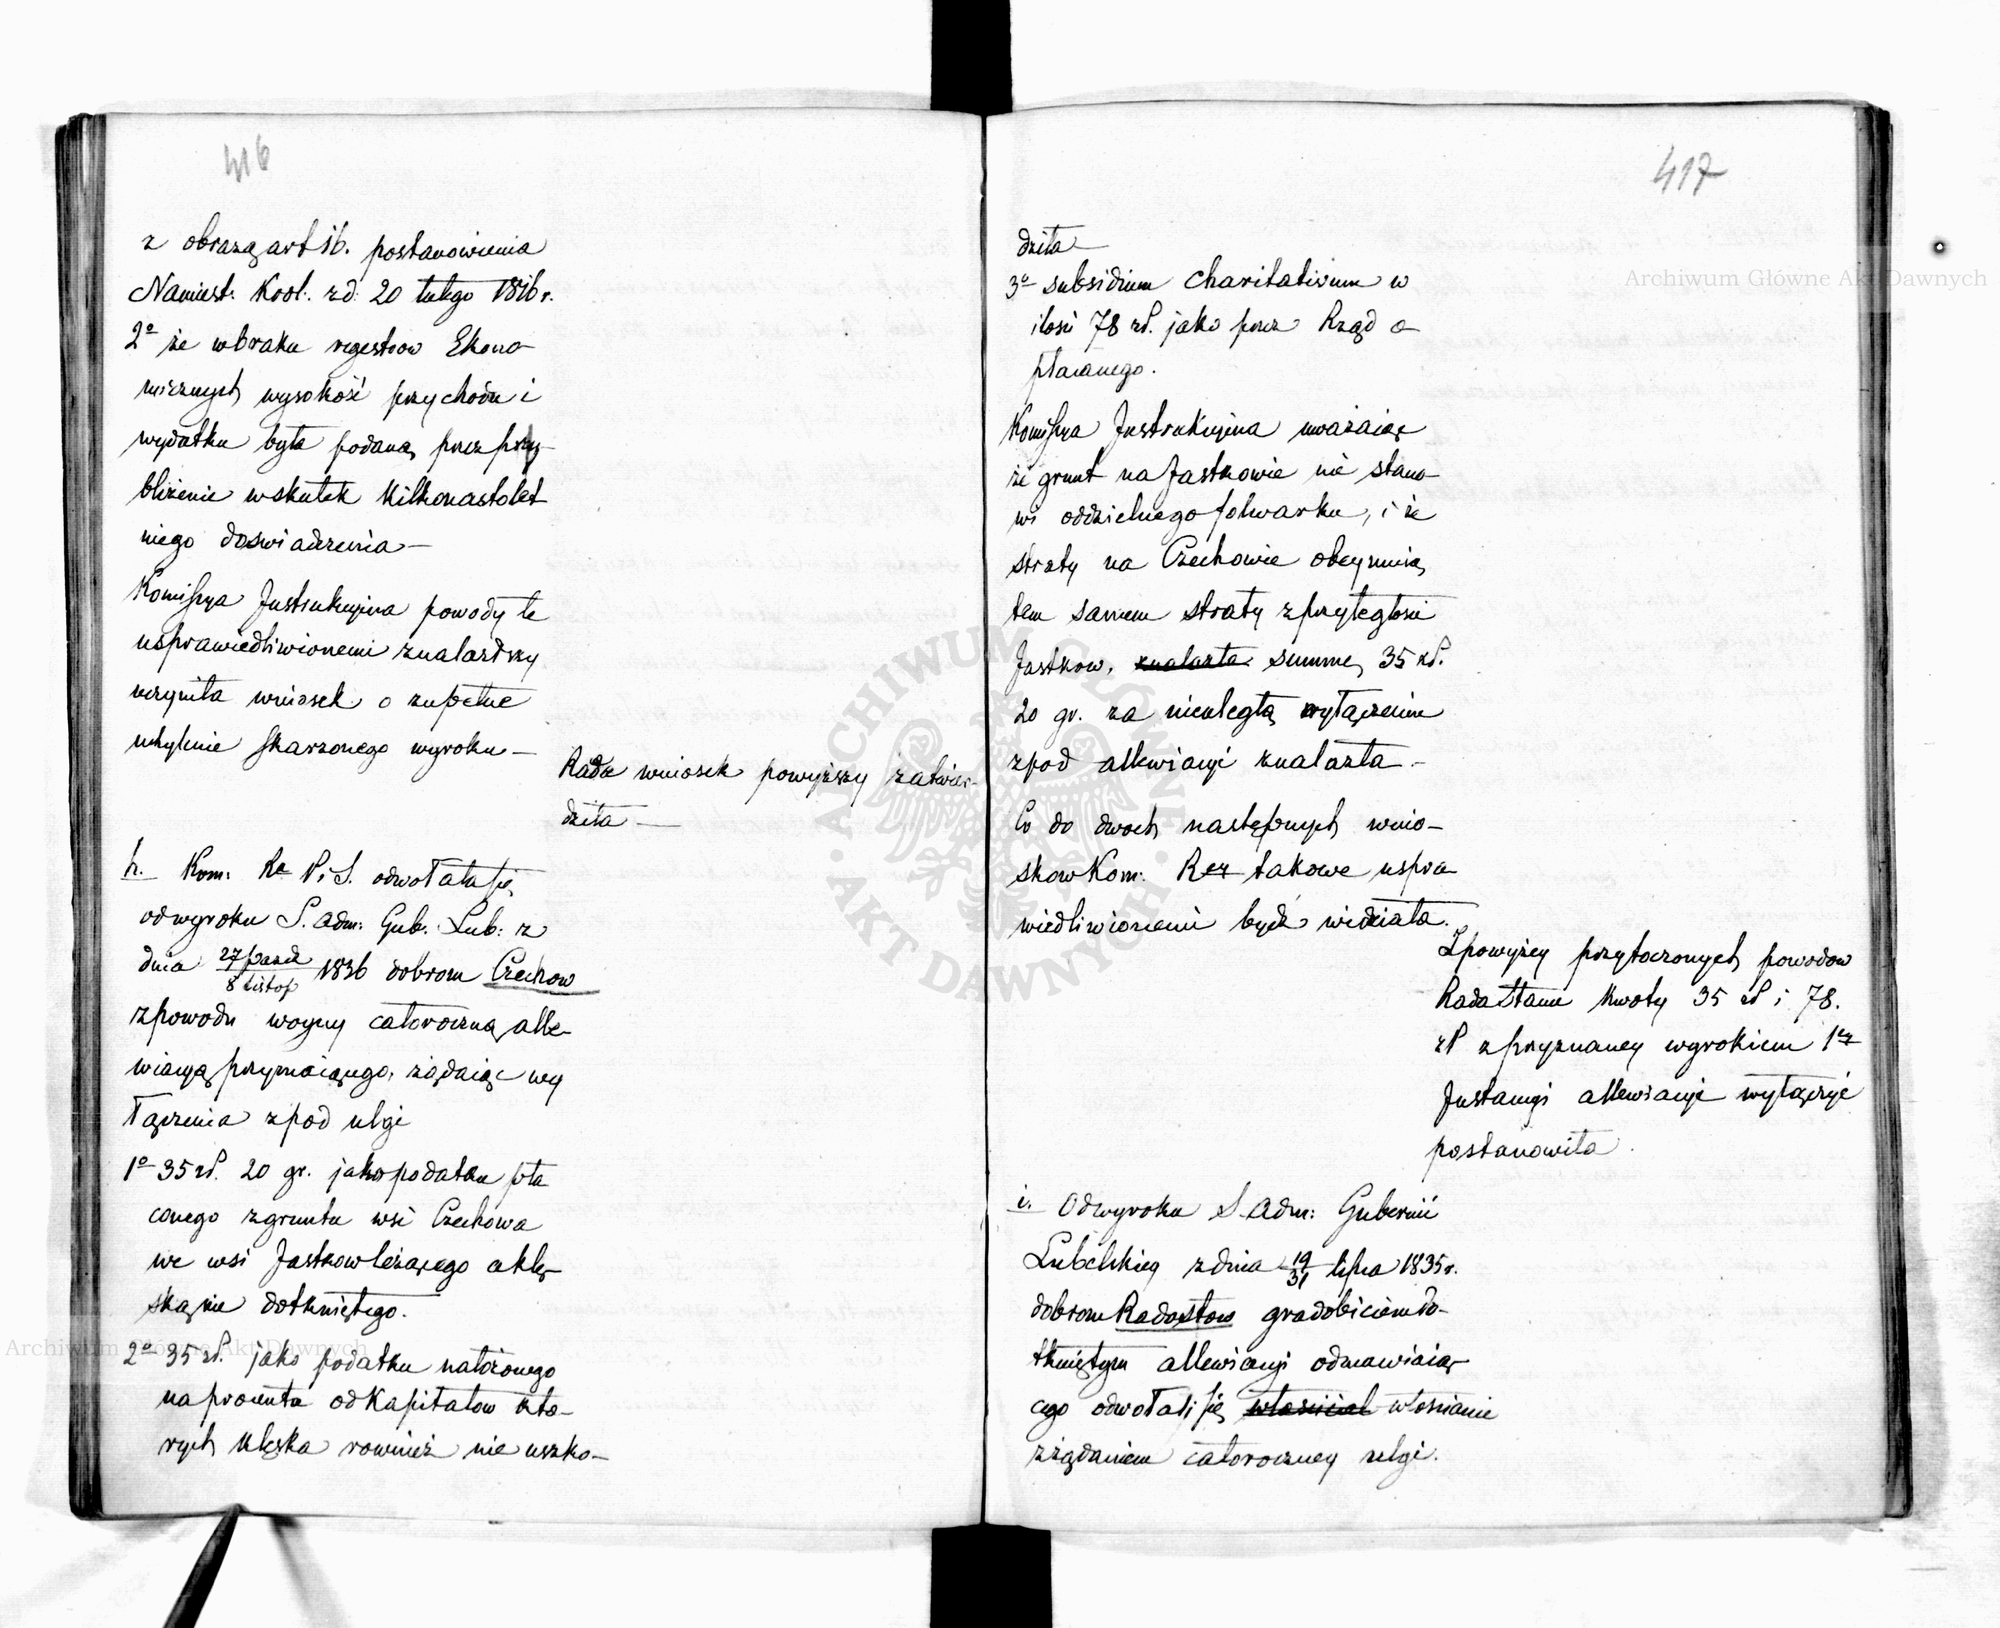 416
z obrazą art 16. postanowienia
Namiest: Król. z d: 20 lutego 1816 r.
2º że w braku regestrow Ekono-
micznych wysokość przychodu i
wydatku była podaną przez przy-
bliżenie w skutek kilkonastolet
niego doswiadczenia —
Kommissya Instrukcyjna powody te
usprawiedliwionemi znalazłszy
uczyniła wniosek o zupełne
uchylenie skarżonego wyroku —
Rada wniosek powyższy zatwier-
dziła —
h. Kom: Rz P. i S. odwołała się
od wyroku S. Adm: Gub. Lub: z
dnia 27 paźd / 8 Listop 1836 dobrom Czechow
z powodu wojny całoroczną alle-
wiacyą przyznaiącego, żądaiąc wy
łączenia z pod ulgi
1º 35 zł. 20 gr. jako podatku pła
conego z gruntu wsi Czechowa
we wsi Jastkow leżącego a klę-
ską nie dotkniętego.
2º 35 zł. jako podatku nałożonego
na procenta od Kapitałow kto-
rych klęska rownież nie uszko-
417
dziła —
3º subsidium charitativum w
ilości 78 zł. jako przez Rząd o-
płacanego.
Kommissya Instrukcyjna uważaiąc
że grunt na Jastkowie nie stano-
wi oddzielnego folwarku, i że
straty na Czechowie obeymuią
tem samem straty z przyległości
Jastkow, znalazła summę 35 zł.
20 gr. za nieuległą wyłączeniu
z pod allewiacyi znalazła —
Co do dwoch następnych wnio-
skow Kom: Rz takowe uspra-
wiedliwionemi bydź widziała.
Z powyżey przytoczonych powodow
Rada Stanu kwoty 35 zł i 78.
zł z przyznaney wyrokiem 1ey
Instancyi allewiacyi wyłączyć
postanowiła.
i. Od wyroku S. Adm: Gubernii
Lubelskiey z dnia 19/31 lipca 1835 r.
dobrom Radostow gradobiciem do-
tkniętym allewiacyi odmawiaią-
cego odwołali się właściciel włościanie
z żądaniem całoroczney ulgi.
Archiwum Główne Akt Dawnych
Archiwum Główne Akt Dawnych
ARCHIWUM GŁÓWNE · AKT DAWNYCH ·